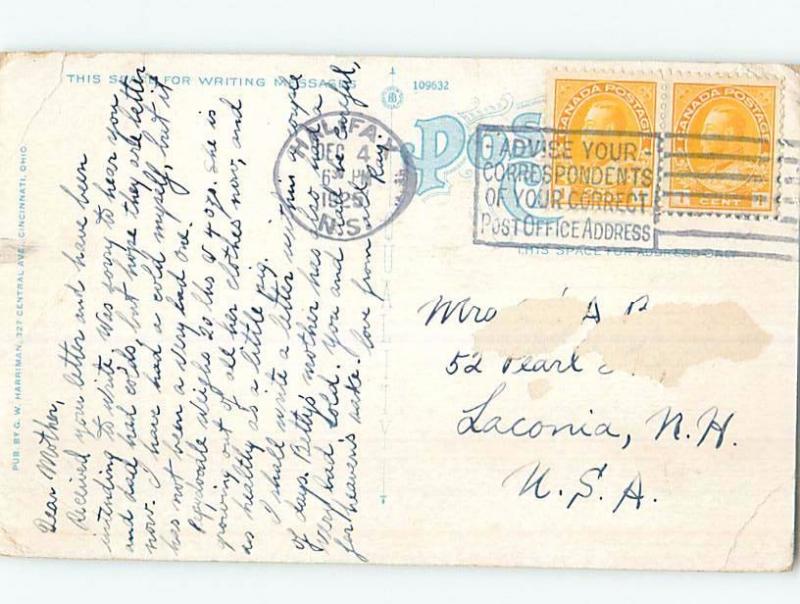 THIS SPACE FOR WRITING MESSAGES
109632
POST
HALIFAX
DEC 4
6 PM
1925
N.S.
ADVISE YOUR
CORRESPONDENTS
OF YOUR CORRECT
POST OFFICE ADDRESS
CANADA POSTAGE
CANADA POSTAGE
1 CENT
THIS SPACE FOR ADDRESS ONLY
PUB. BY G. W. HARRIMAN, 327 CENTRAL AVE. CINCINNATI, OHIO.
Dear Mother,
Received your letter and have been
intending to write. Was sorry to hear you
and dad had colds, but hope they are better
now. I have had a cold myself, but it
has not been a very bad one.
weighs 20 lbs & 4 ozs. She is
growing out of all her clothes now, and
as healthy as a little pig.
I shall write a letter within a couple
of days. Betty's mother has also had a
very bad cold. You and dad be careful,
for heaven's sake. Love from all
Mrs A
52 Pearl
Laconia, N.H.
U.S.A.